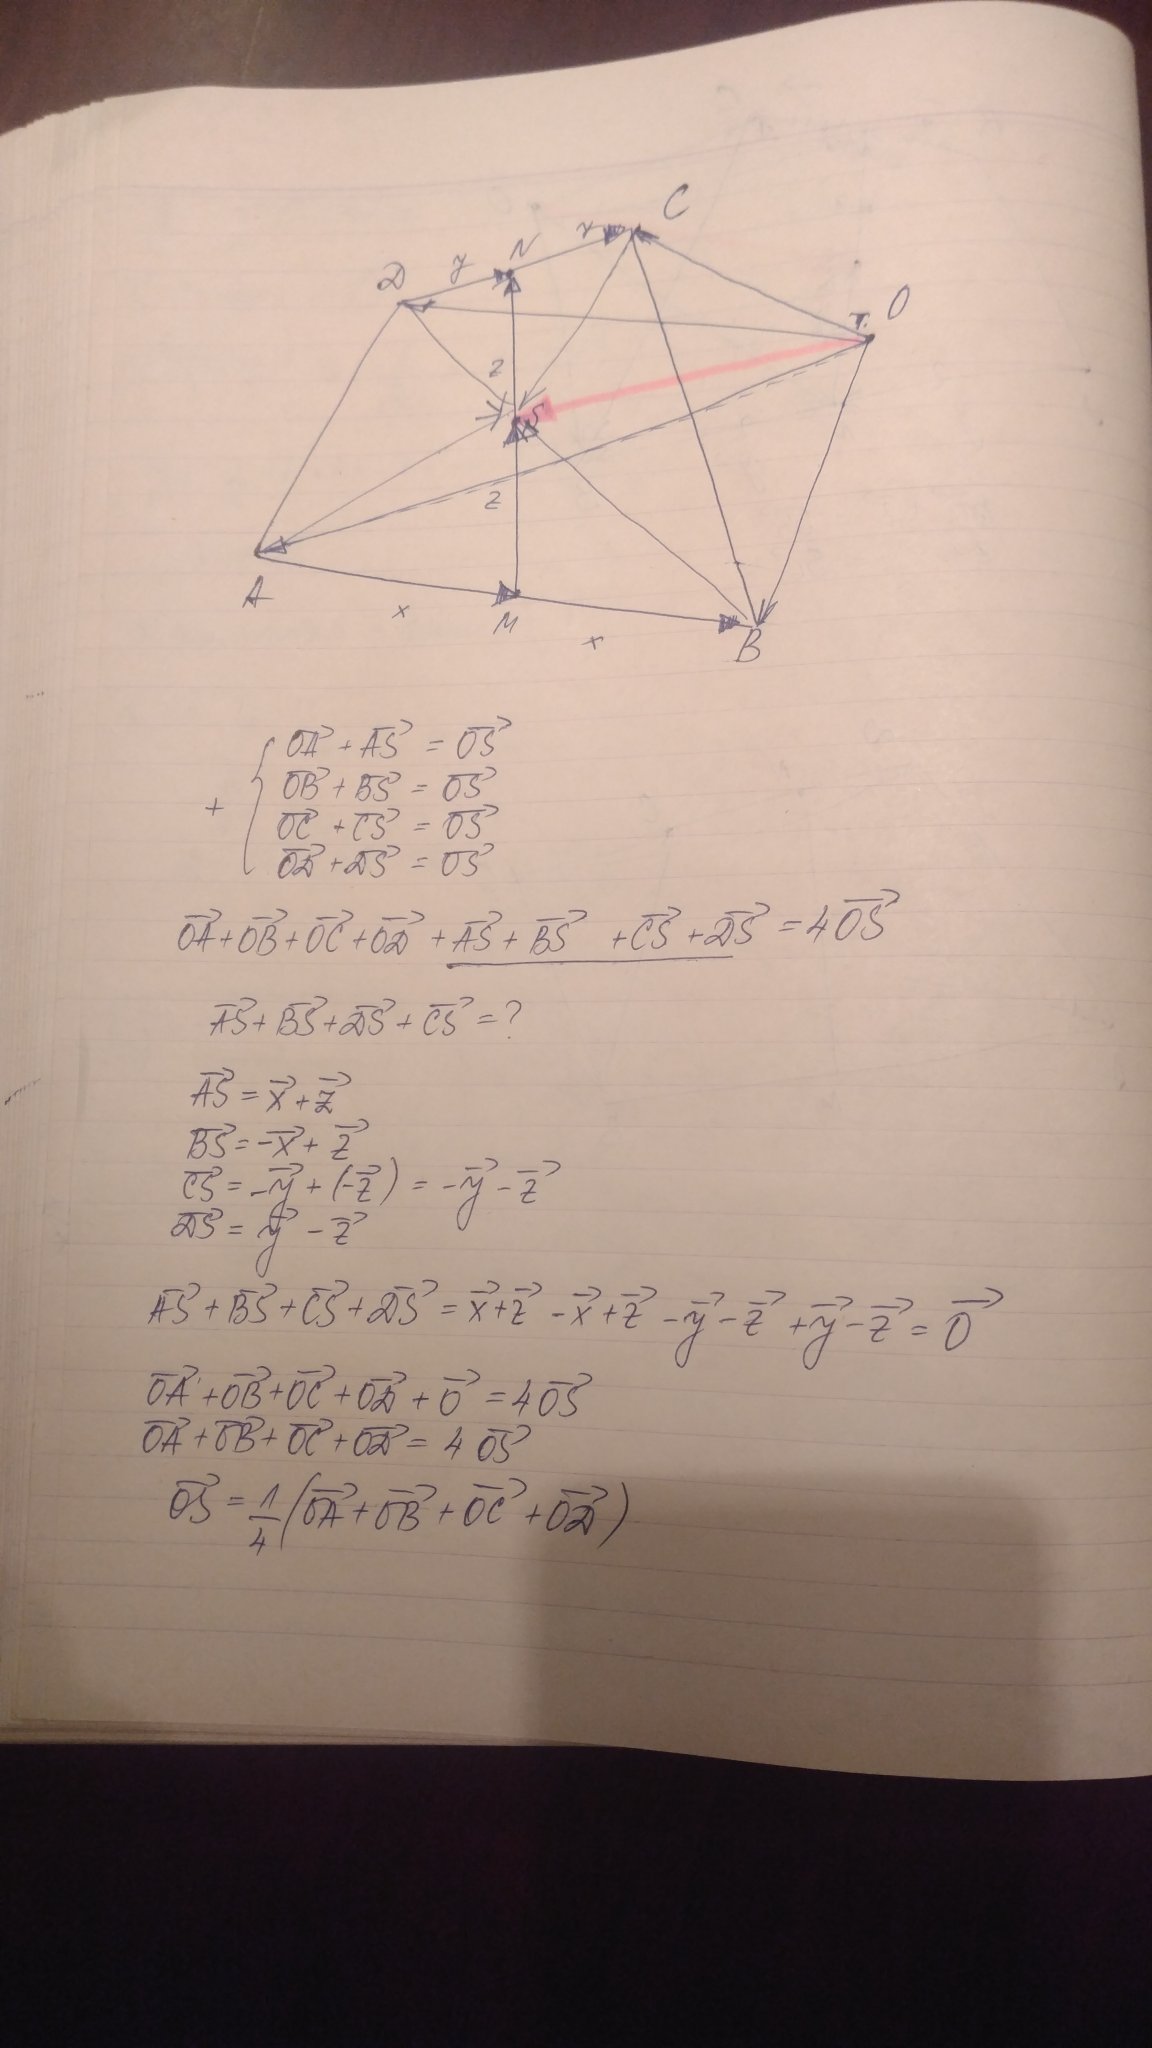 C
N
y
y
D
O
z
S
z
A
x
M
x
B
+ { \vec{OA} + \vec{AS} = \vec{OS}
\vec{OB} + \vec{BS} = \vec{OS}
\vec{OC} + \vec{CS} = \vec{OS}
\vec{OD} + \vec{DS} = \vec{OS}
\vec{OA} + \vec{OB} + \vec{OC} + \vec{OD} + \vec{AS} + \vec{BS} + \vec{CS} + \vec{DS} = 4\vec{OS}
\vec{AS} + \vec{BS} + \vec{DS} + \vec{CS} = ?
\vec{AS} = \vec{x} + \vec{z}
\vec{BS} = -\vec{x} + \vec{z}
\vec{CS} = -\vec{y} + (-\vec{z}) = -\vec{y} - \vec{z}
\vec{DS} = \vec{y} - \vec{z}
\vec{AS} + \vec{BS} + \vec{CS} + \vec{DS} = \vec{x} + \vec{z} - \vec{x} + \vec{z} - \vec{y} - \vec{z} + \vec{y} - \vec{z} = \vec{0}
\vec{OA} + \vec{OB} + \vec{OC} + \vec{OD} + \vec{0} = 4\vec{OS}
\vec{OA} + \vec{OB} + \vec{OC} + \vec{OD} = 4\vec{OS}
\vec{OS} = \frac{1}{4}(\vec{OA} + \vec{OB} + \vec{OC} + \vec{OD})